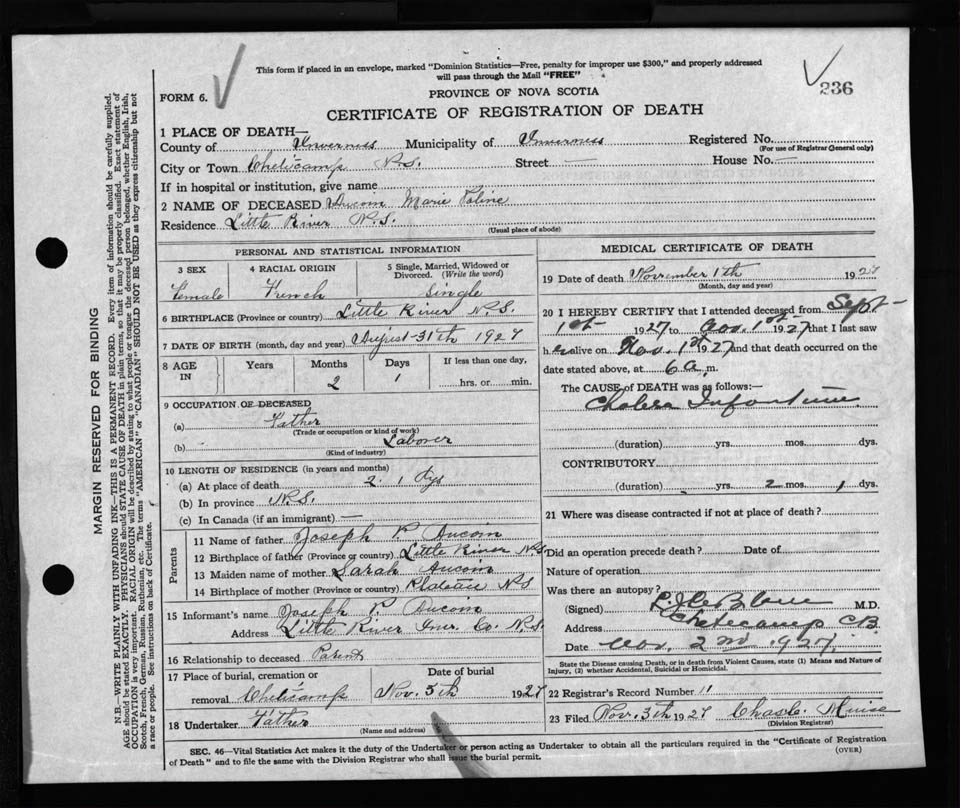 This form if placed in an envelope, marked "Dominion Statistics—Free, penalty for improper use $300," and properly addressed
will pass through the Mail "FREE"
236
FORM 6.
PROVINCE OF NOVA SCOTIA
CERTIFICATE OF REGISTRATION OF DEATH
1 PLACE OF DEATH—
County of Inverness Municipality of Inverness Registered No.
(For use of Registrar General only)
City or Town Cheticamp N.S. Street — House No. —
If in hospital or institution, give name
2 NAME OF DECEASED Aucoin Marie
Residence Little River N.S.
(Usual place of abode)
PERSONAL AND STATISTICAL INFORMATION
3 SEX 4 RACIAL ORIGIN 5 Single, Married, Widowed or
Divorced. (Write the word)
Female French Single
6 BIRTHPLACE (Province or country) Little River N.S.
7 DATE OF BIRTH (month, day and year) August 31th 1927
8 AGE IN Years Months Days If less than one day,
2 1 hrs. or min.
9 OCCUPATION OF DECEASED
(a) Father
(Trade or occupation or kind of work)
(b) Laborer
(Kind of industry)
10 LENGTH OF RESIDENCE (in years and months)
(a) At place of death 2. 1 Dys
(b) In province N.S.
(c) In Canada (if an immigrant) —
Parents
11 Name of father Joseph P Aucoin
12 Birthplace of father (Province or country) Little River N.S.
13 Maiden name of mother Sarah Aucoin
14 Birthplace of mother (Province or country) Plateau N.S
15 Informant's name Joseph P. Aucoin
Address Little River Inv. Co. N.S.
16 Relationship to deceased Parent
17 Place of burial, cremation or Date of burial
removal Cheticamp Nov. 3th 1927
18 Undertaker Father
(Name and address)
MEDICAL CERTIFICATE OF DEATH
19 Date of death November 1th 1927
(Month, day and year)
20 I HEREBY CERTIFY that I attended deceased from Sept
1st 1927 to Nov. 1st 1927 that I last saw
h er alive on Nov. 1st 1927 and that death occurred on
date stated above, at 6 a. m.
The CAUSE of DEATH was as follows:—
Cholera Infantum
(duration) yrs. mos. dys.
CONTRIBUTORY
(duration) - yrs. 2 mos. 1 dys.
21 Where was disease contracted if not at place of death?
Did an operation precede death? Date of
Nature of operation
Was there an autopsy?
(Signed) M.D.
Address Cheticamp CB
Date Nov. 2nd 1927
State the Disease causing Death, or in death from Violent Causes, state (1) Means and Nature of
Injury, (2) whether Accidental, Suicidal or Homicidal.
22 Registrar's Record Number 11
23 Filed Nov. 3th 1927 Chas. C. Muise
(Division Registrar)
SEC. 46—Vital Statistics Act makes it the duty of the Undertaker or person acting as Undertaker to obtain all the particulars required in the "Certificate of Registration
of Death" and to file the same with the Division Registrar who shall issue the burial permit.
(OVER)
MARGIN RESERVED FOR BINDING
N.B.—WRITE PLAINLY WITH UNFADING INK—THIS IS A PERMANENT RECORD. Every item of information should be carefully supplied.
AGE should be stated EXACTLY. PHYSICIANS should STATE CAUSE OF DEATH in plain terms, so that it may be properly classified. Exact statement of
OCCUPATION is very important. RACIAL ORIGIN will be described by stating to what people or tongue the deceased person belonged, whether English, Irish,
Scotch, French, German, Russian, Ruthenian, etc. The terms "AMERICAN" or "CANADIAN" SHOULD NOT BE USED as they express citizenship but not
a race or people. See instructions on back of Certificate.